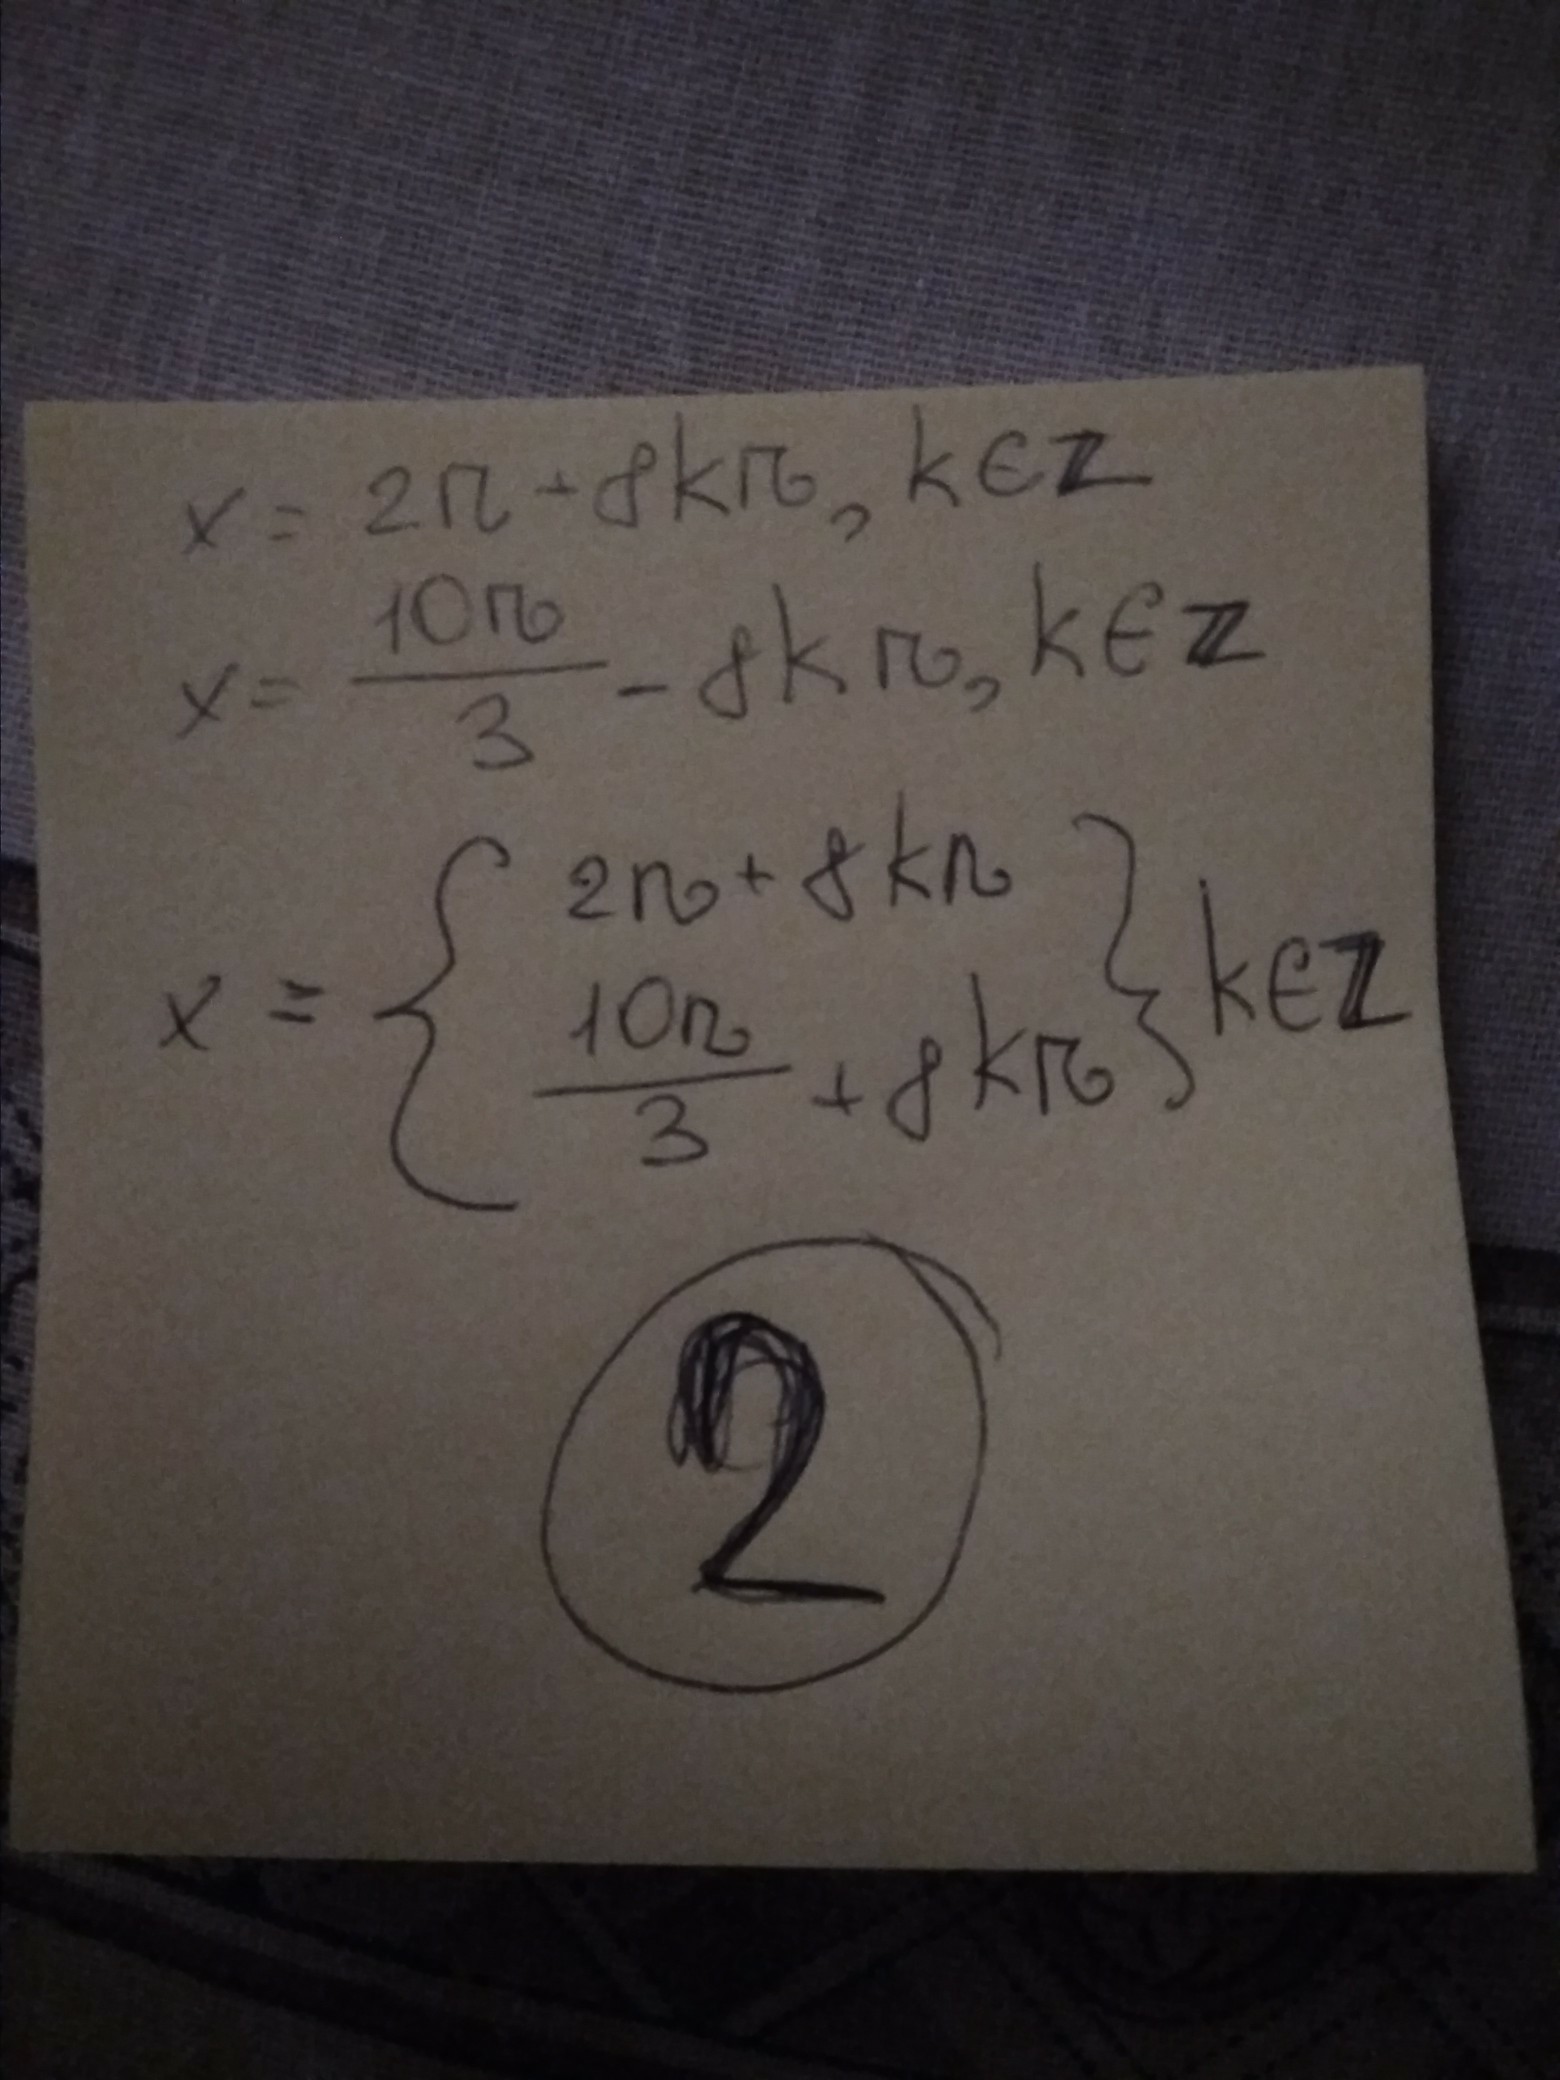 x = 2π + 8kπ, k ∈ Z
x = 10π/3 - 8kπ, k ∈ Z
x = { 2π + 8kπ
10π/3 + 8kπ } k ∈ Z
2